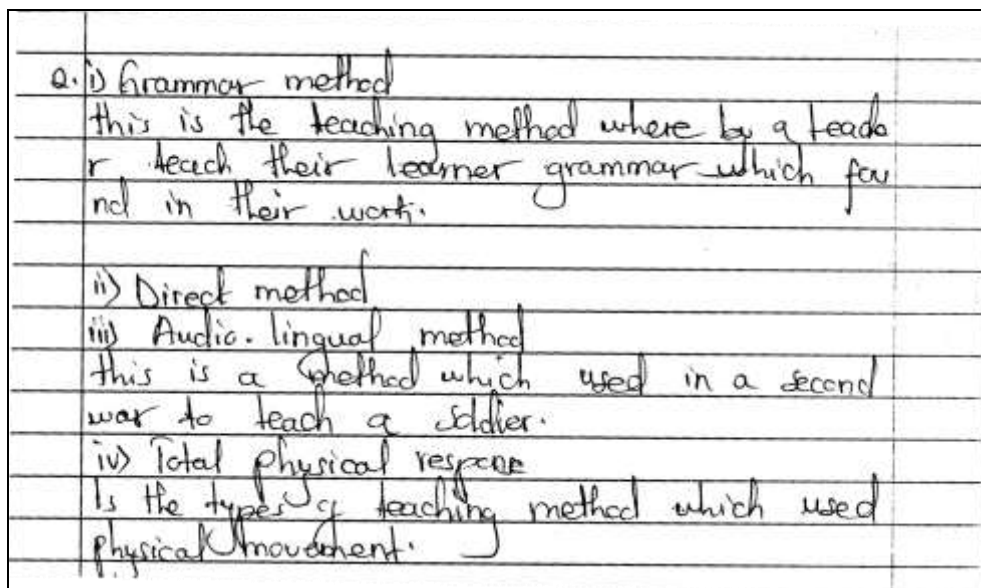 2. i) Grammar method
this is the teaching method where by a teache
r teach their learner grammar which fou
nd in their work.
ii) Direct method
iii) Audio. lingual method
this is a method which used in a second
war to teach a soldier.
iv) Total physical respone
Is the types of teaching method which used
physical movement.